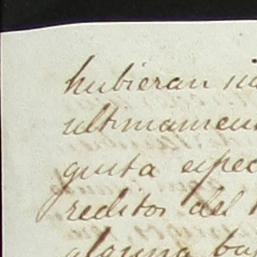 hubieran si
ultimamen
gusta espec
reditos del
alguna ba